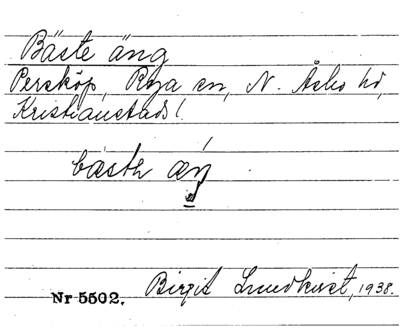 Bäste äng
Persköp, Röja sn, N. Åsbo hd,
Kristianstads l.
bástə æŋ
Nr 5502. Birgit Lundkvist, 1938.